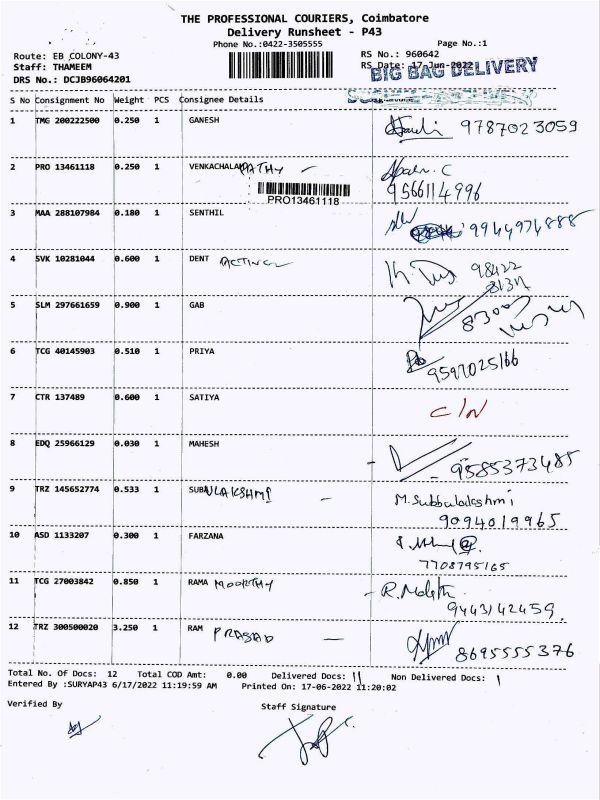 THE PROFESSIONAL COURIERS, Coimbatore
Delivery Runsheet - P43
Phone No.:0422-3505555 Page No.:1
Route: EB COLONY-43 RS No.: 960642
Staff: THAMEEM RS Date: 17-Jun-2022
DRS No.: DCJB96064201 BIG BAG DELIVERY
S No Consignment No Weight PCS Consignee Details
1 TMG 200222500 0.250 1 GANESH 9787023059
2 PRO 13461118 0.250 1 VENKACHALAPATHY -
PRO13461118 9566114996
3 MAA 288107984 0.180 1 SENTHIL 9944974888
4 SVK 10281044 0.600 1 DENT 98422
5 SLM 297661659 0.900 1 GAB
6 TCG 40145903 0.510 1 PRIYA 9597025166
7 CTR 137489 0.600 1 SATIYA C/N
8 EDQ 25966129 0.030 1 MAHESH 9585373485
9 TRZ 145652774 0.533 1 SUBULAKSHMI - M.Subbulakshmi
9094019965
10 ASD 1133207 0.300 1 FARZANA
7708795165
11 TCG 27003842 0.850 1 RAMA MOORTHY
9443142459.
12 TRZ 300500020 3.250 1 RAM PRASAD - 8695555376
Total No. Of Docs: 12 Total COD Amt: 0.00 Delivered Docs: 11 Non Delivered Docs: 1
Entered By :SURYAP43 6/17/2022 11:19:59 AM Printed On: 17-06-2022 11:20:02
Verified By Staff Signature